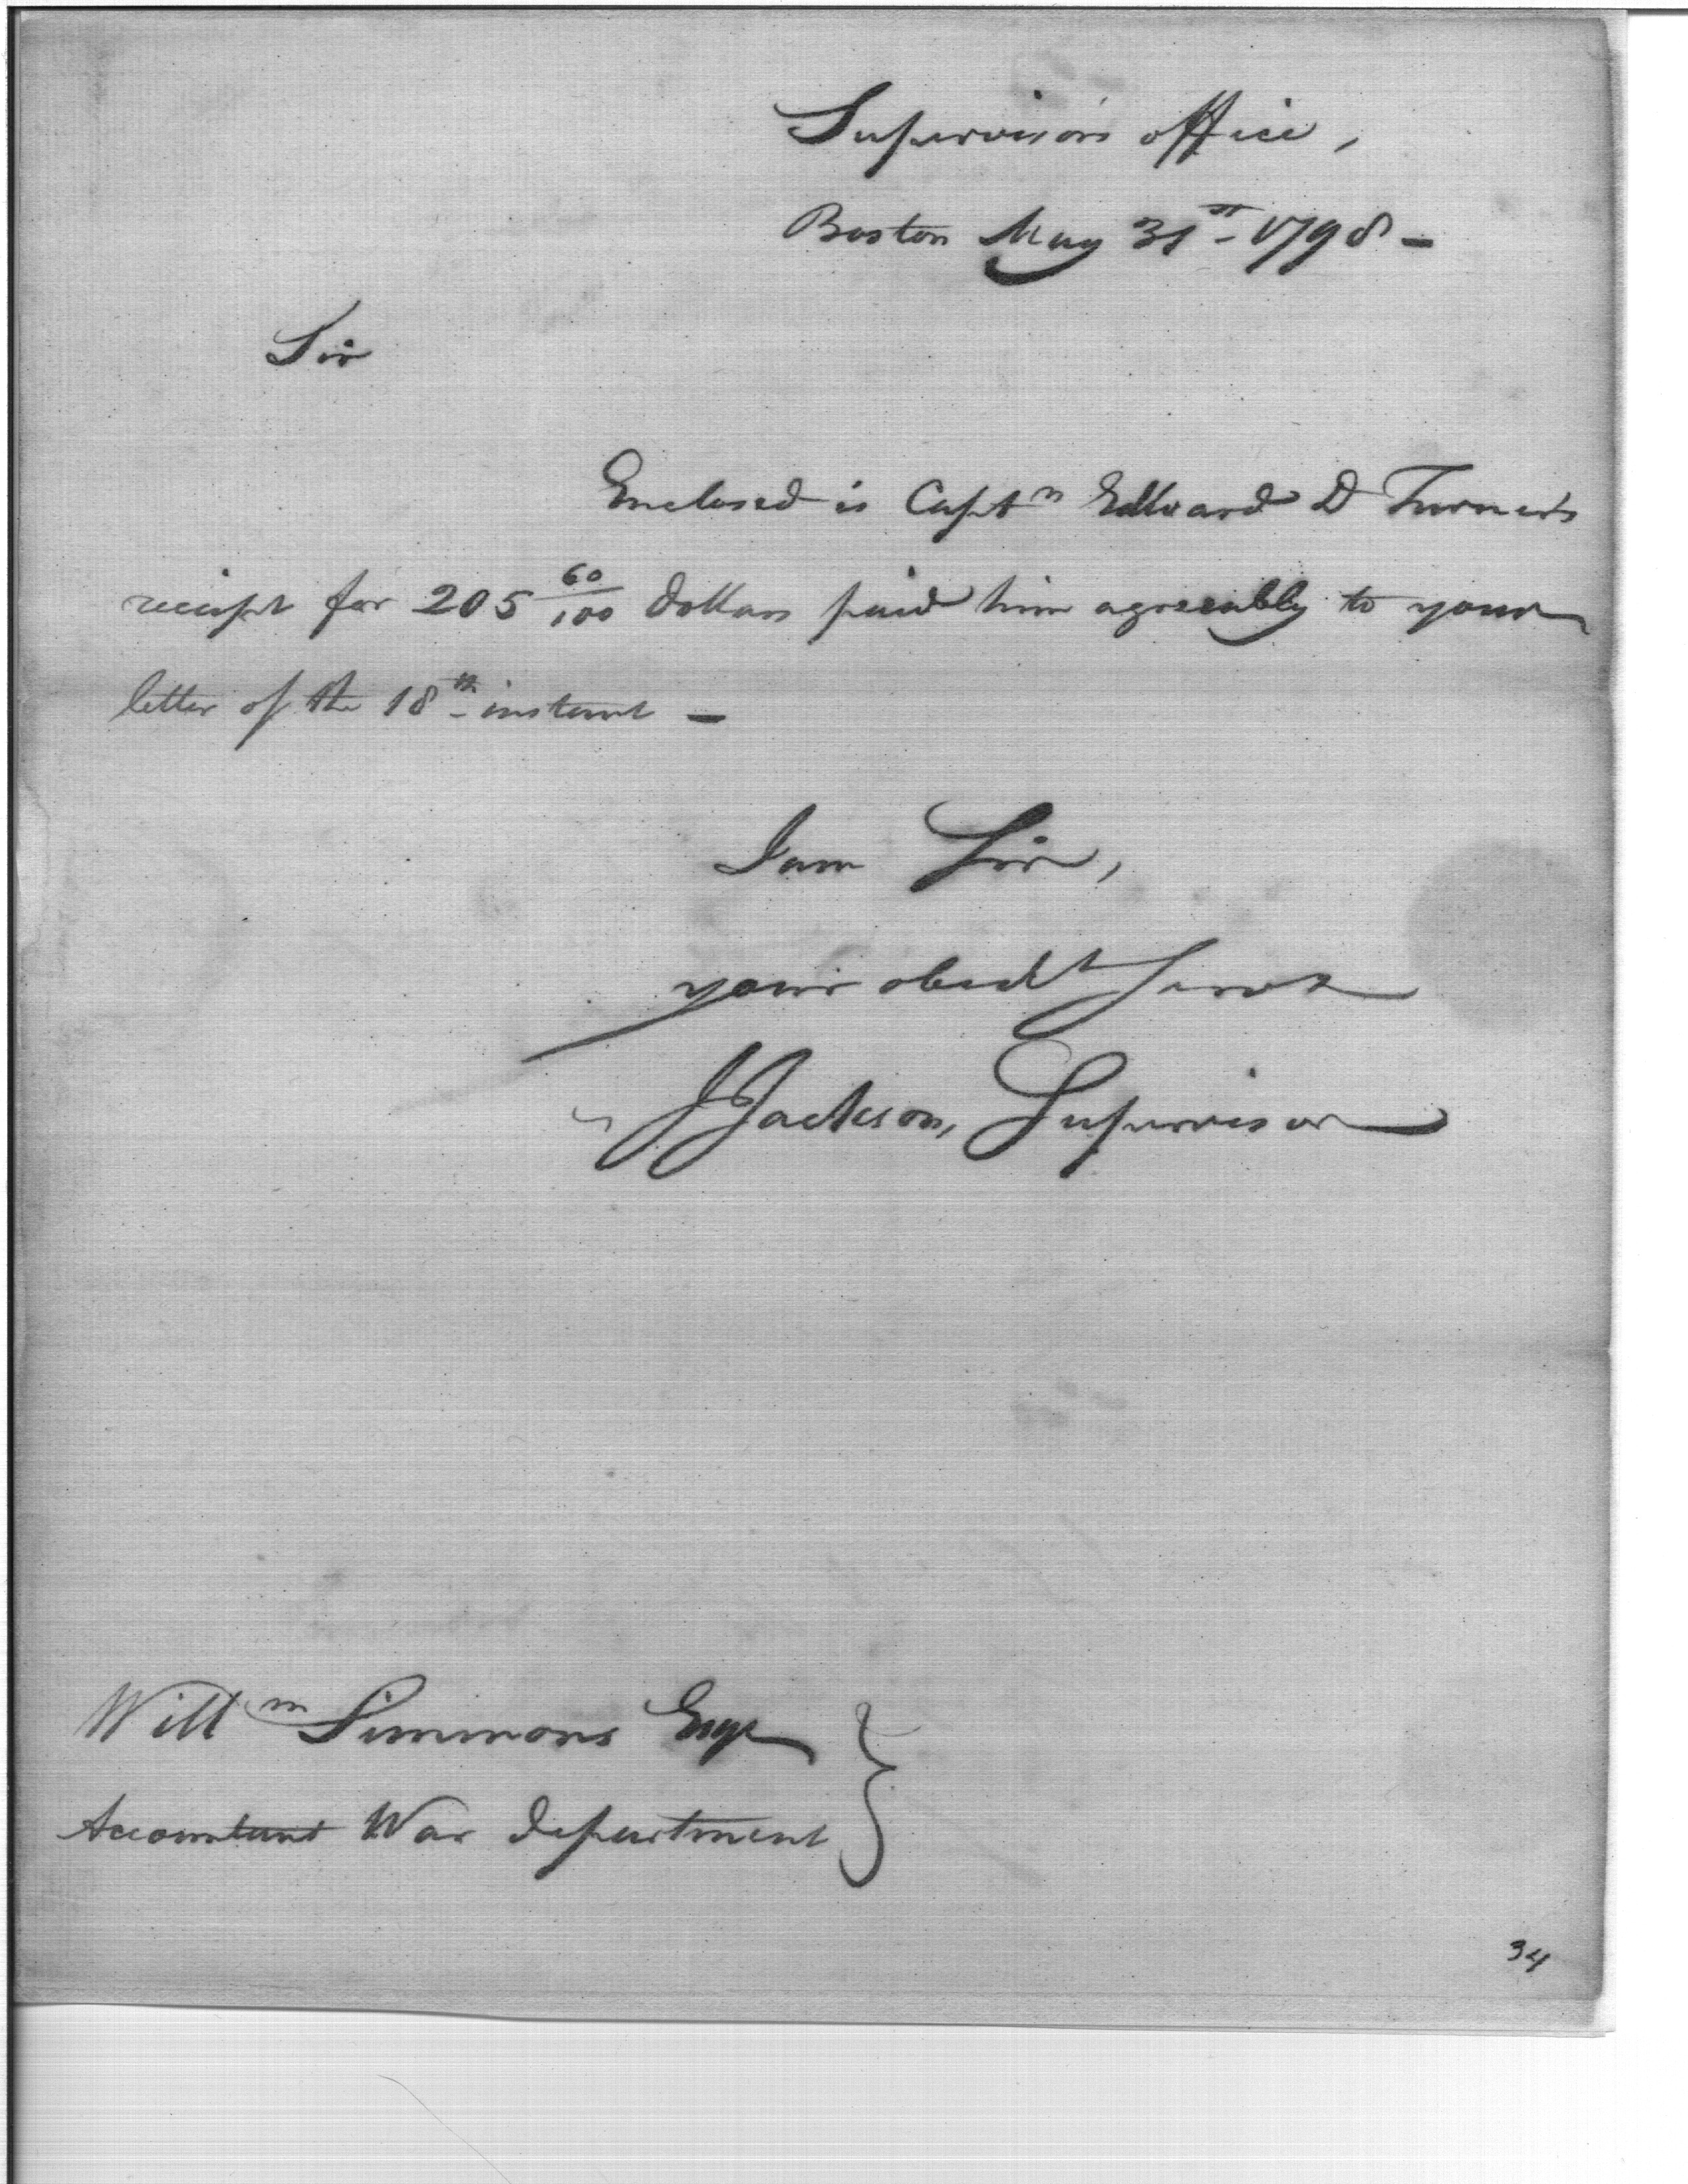 Supervisor's office,
Boston May 31st - 1798 -
Sir
Enclosed is Captn Edward D Turner's
receipt for 205 60/100 dollars paid him agreeably to your
letter of the 18th instant -
I am Sir,
your obedt servt
J Jackson, Supervisor
Willm Simmons Esqr
Accountant War department
34